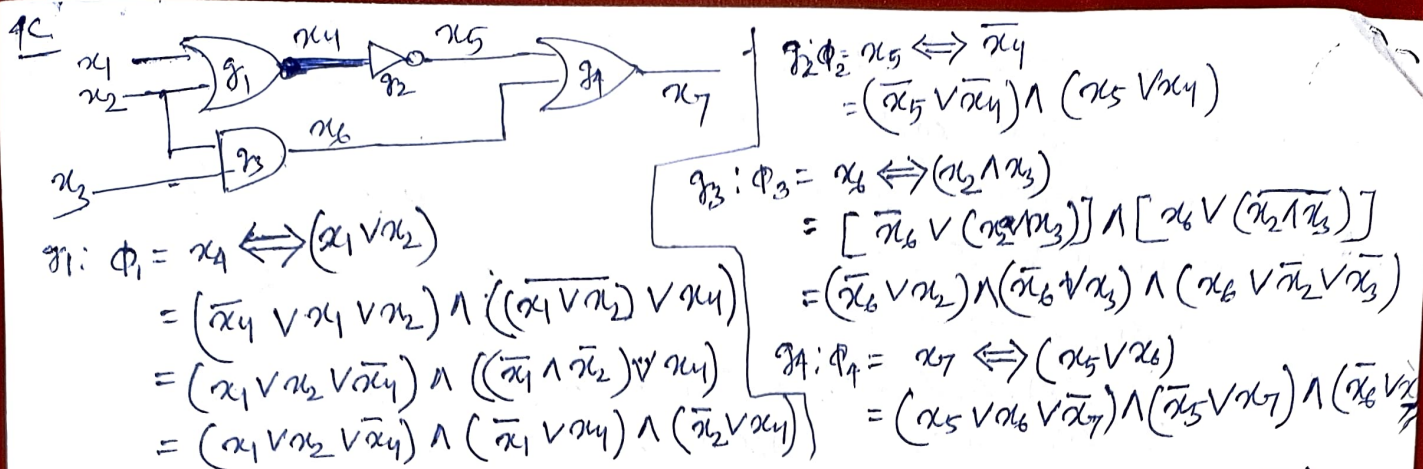 4C
x1
x2
x3
g1
x4
g2
x5
g3
x6
g4
x7
g1: ϕ1 = x4 ⟺ (x1 ∨ x2)
= (x̄4 ∨ x1 ∨ x2) ∧ ((\overline{x1 ∨ x2}) ∨ x4)
= (x1 ∨ x2 ∨ x̄4) ∧ ((x̄1 ∧ x̄2) ∨ x4)
= (x1 ∨ x2 ∨ x̄4) ∧ (x̄1 ∨ x4) ∧ (x̄2 ∨ x4)
g2: ϕ2 = x5 ⟺ x̄4
= (x̄5 ∨ x̄4) ∧ (x5 ∨ x4)
g3: ϕ3 = x6 ⟺ (x2 ∧ x3)
= [x̄6 ∨ (x2 ∧ x3)] ∧ [x6 ∨ (\overline{x2 ∧ x3})]
= (x̄6 ∨ x2) ∧ (x̄6 ∨ x3) ∧ (x6 ∨ x̄2 ∨ x̄3)
g4: ϕ4 = x7 ⟺ (x5 ∨ x6)
= (x5 ∨ x6 ∨ x̄7) ∧ (x̄5 ∨ x7) ∧ (x̄6 ∨ x7